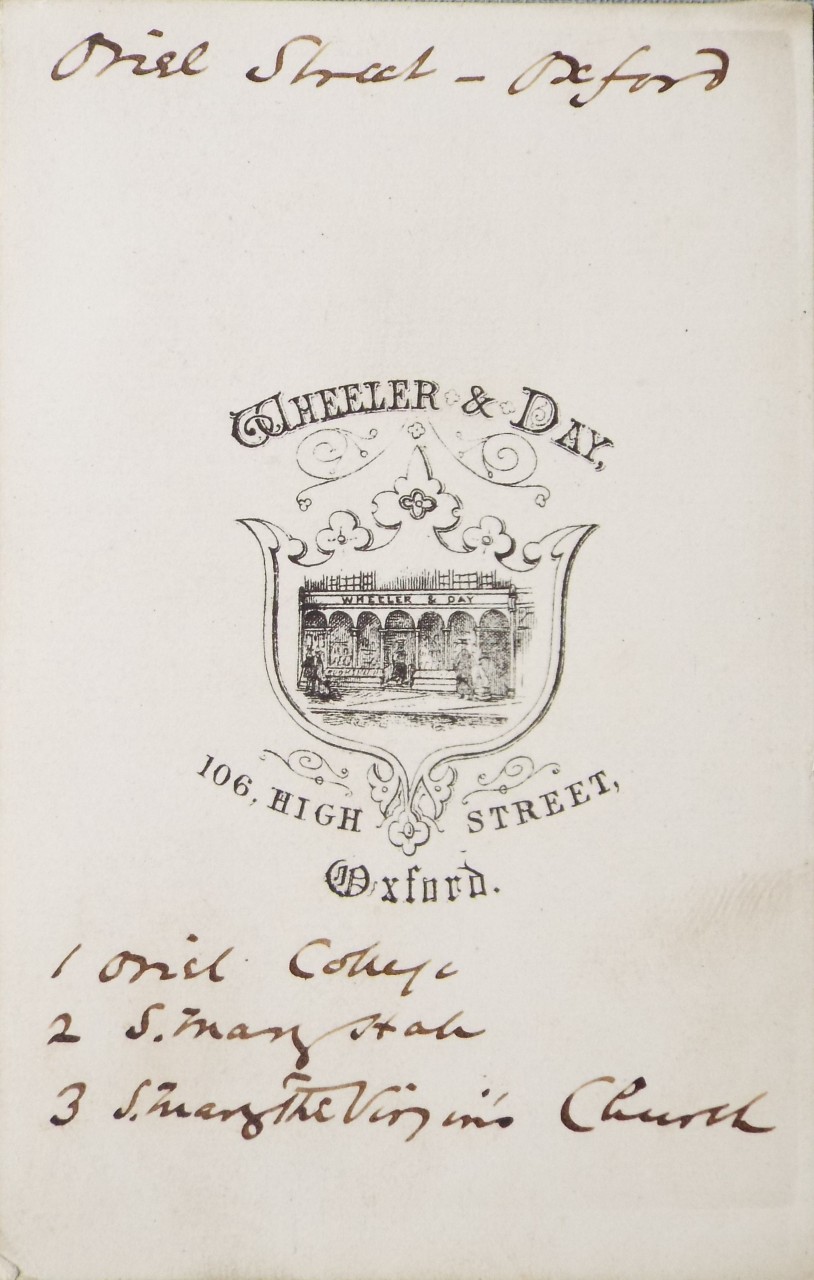 Oriel Street – Oxford
WHEELER & DAY,
WHEELER & DAY
106, HIGH STREET,
Oxford.
1 Oriel College
2 S. Mary Hall
3 S. Mary The Virgin's Church